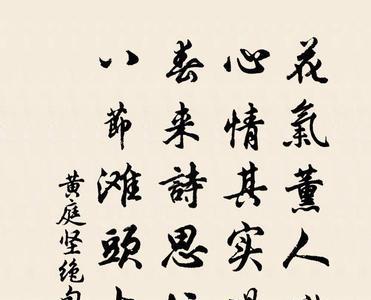 花氣薰人
心情其实
春来詩思
八節滩頭
黄庭坚绝句